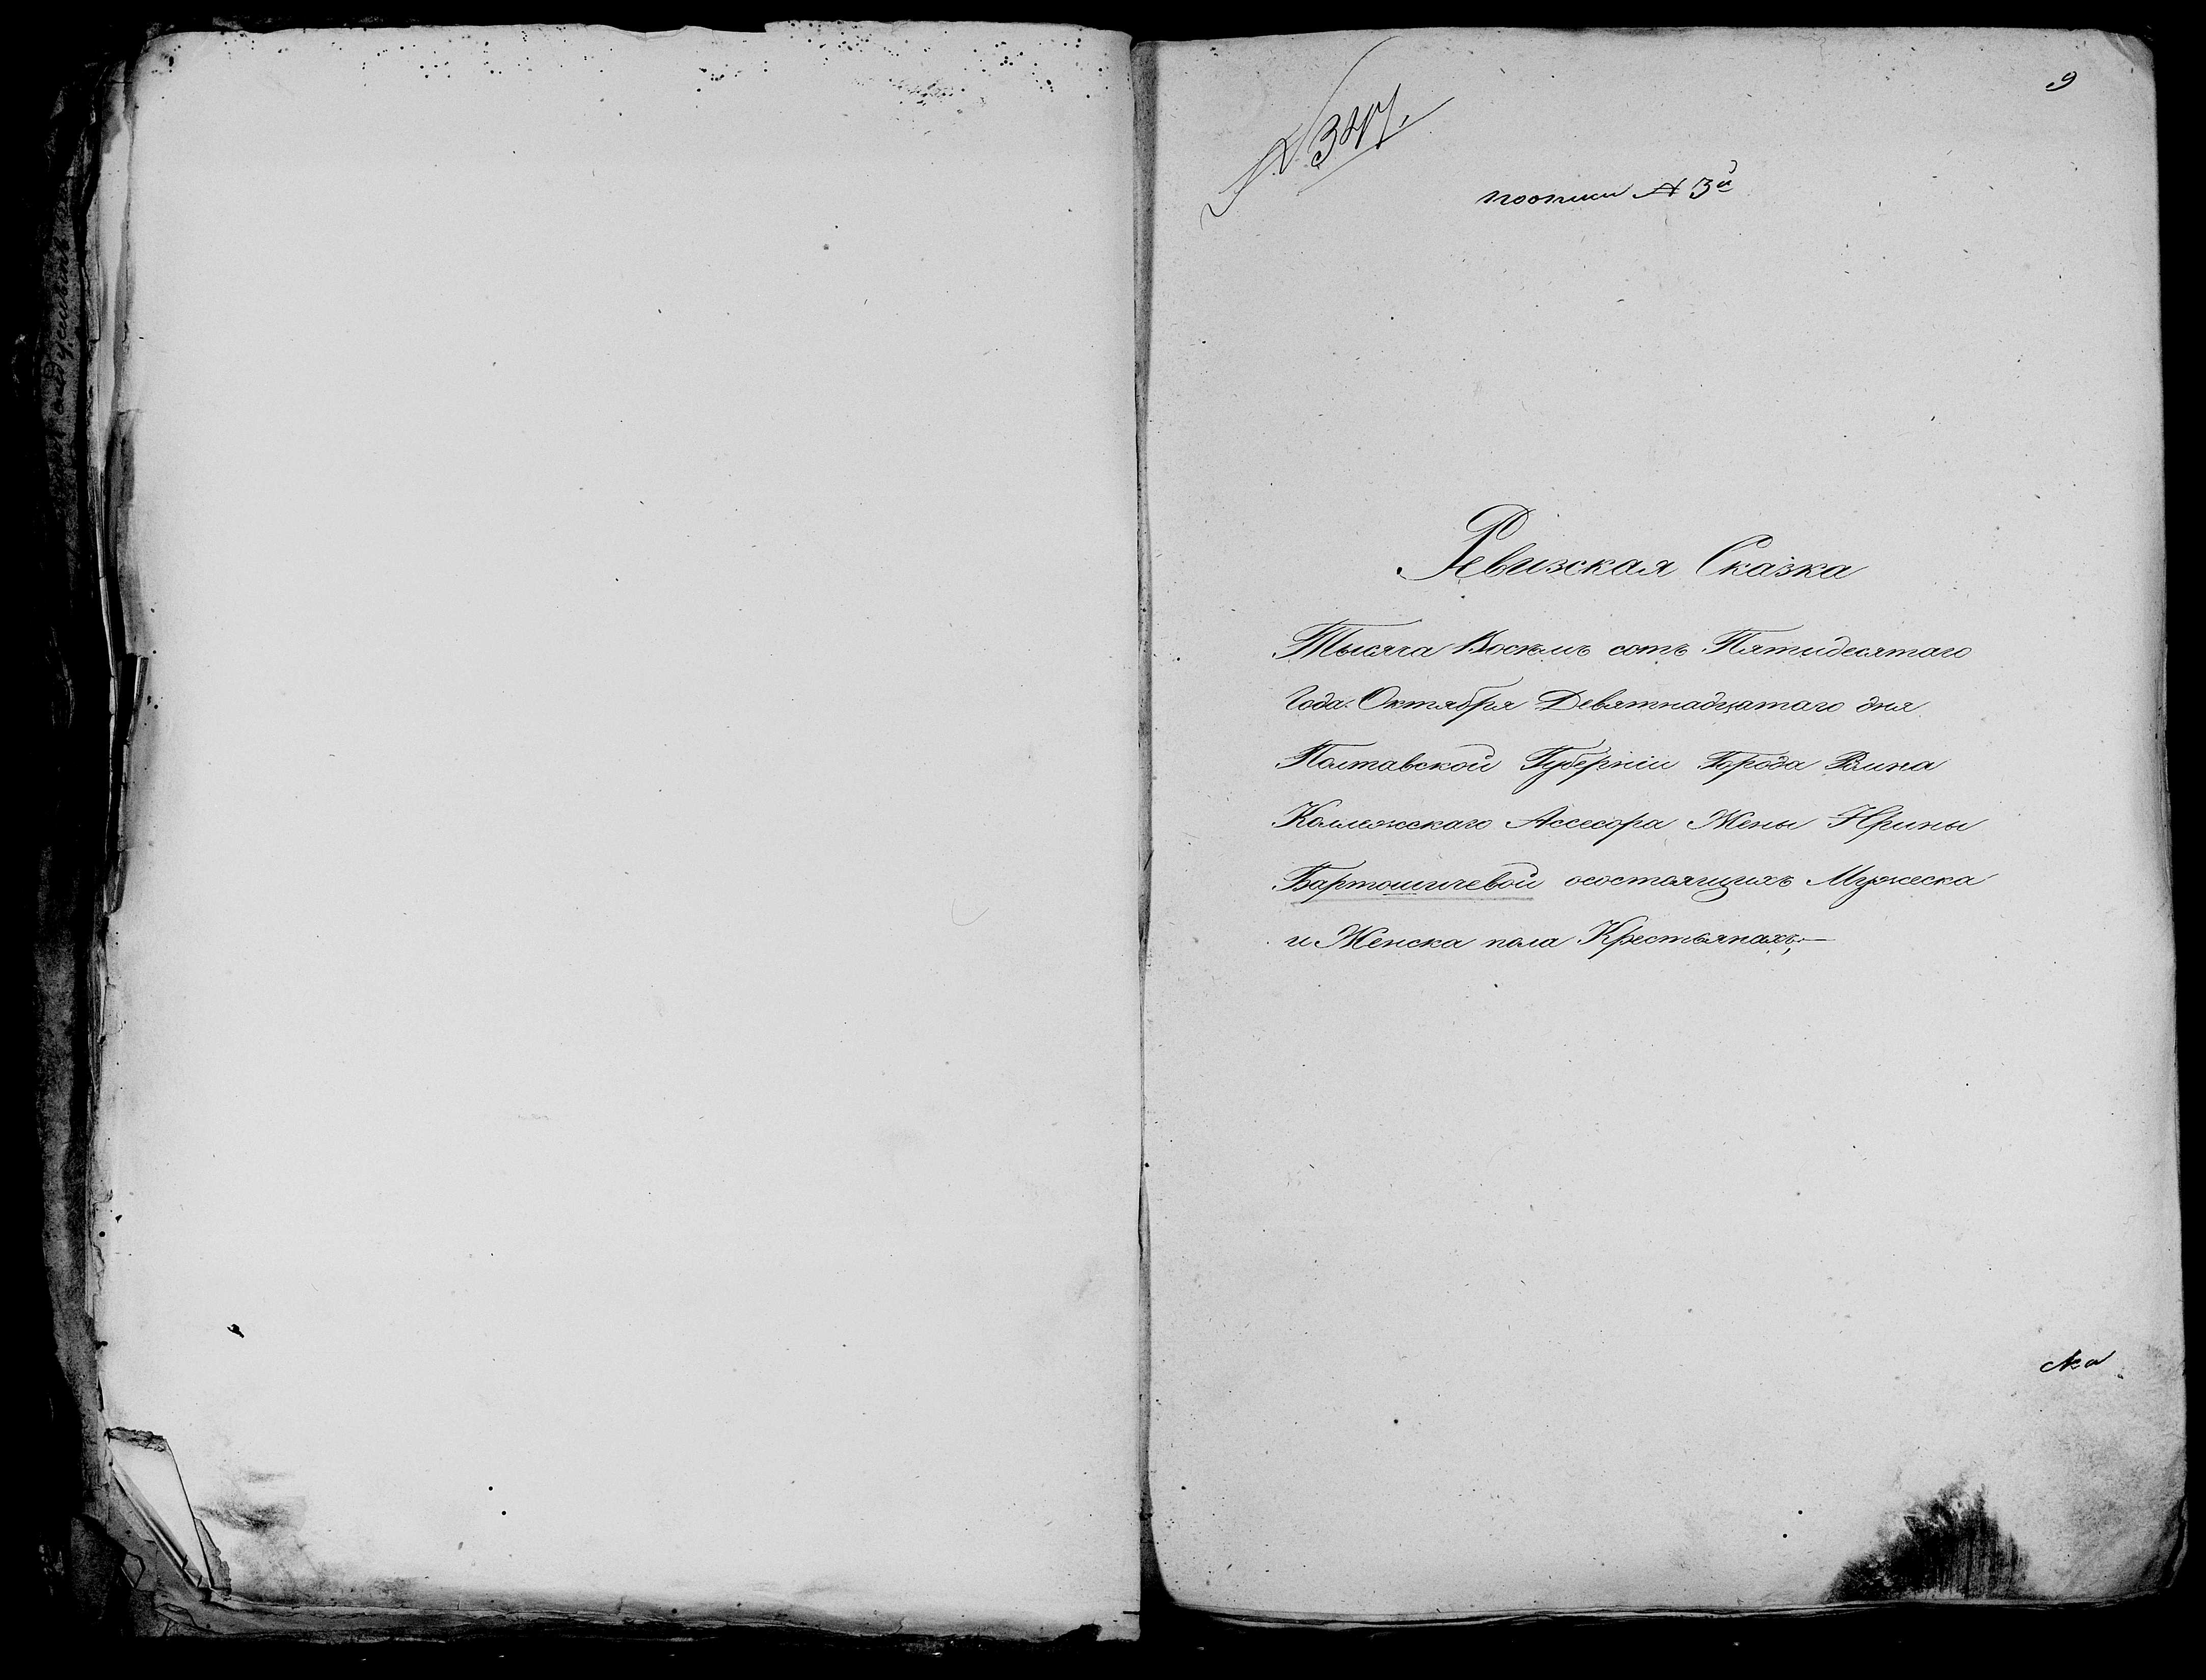 9
№ 347.
поописи № 3й
Ревизская Сказка
Тысяча Восемь сотъ Пятидесятаго
Года Октября Девятнадцатаго дня
Полтавской Губерніи Города
Коллежскаго Ассесора Жены Ирины
Бартошичевой осостоящихъ Мужеска
и Женска пола Крестьянахъ;—